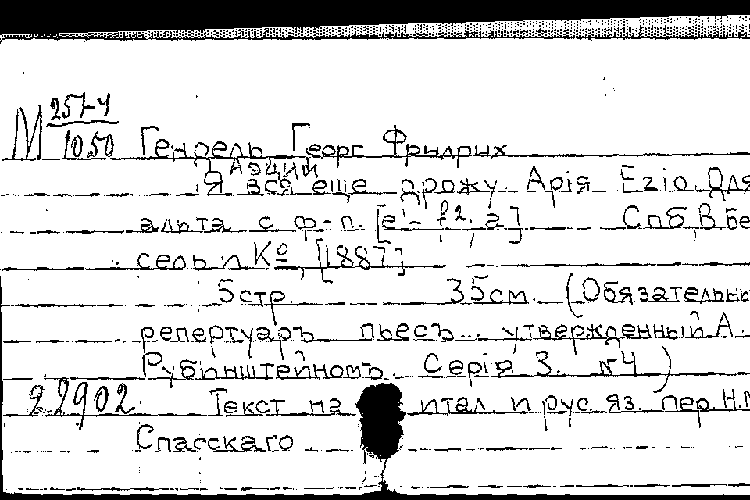 М 257-4/1050 Гендель Георг Фридрих
[Аэций]
Я вся еще дрожу Арія Ezio. Для
альта с ф-п. [e'- f2. a]. Спб, В. бе
сель и Кº, [1887]
5 стр 35см. (Обязательны
репертуаръ пьесъ... утвержденный А.
Рубинштейномъ. Серія 3. №4)
22902. Текст на итал и рус яз. пер. Н.
Спасскаго